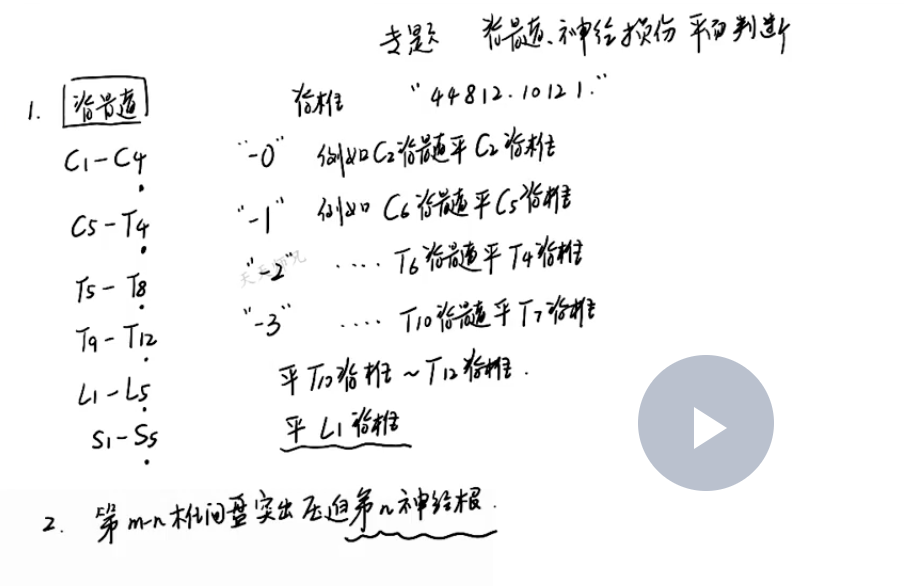 专题 脊髓、神经损伤平面判断
1. 脊髓 脊椎 "44812.10121."
C1-C4 "-0" 例如C2脊髓平C2脊椎
C5-T4 "-1" 例如C6脊髓平C5脊椎
T5-T8 "-2" ···· T6脊髓平T4脊椎
天天师兄
T9-T12 "-3" ···· T10脊髓平T7脊椎
L1-L5 平T10脊椎~T12脊椎.
S1-S5 平L1脊椎
2. 第m-n椎间盘突出压迫第n神经根.